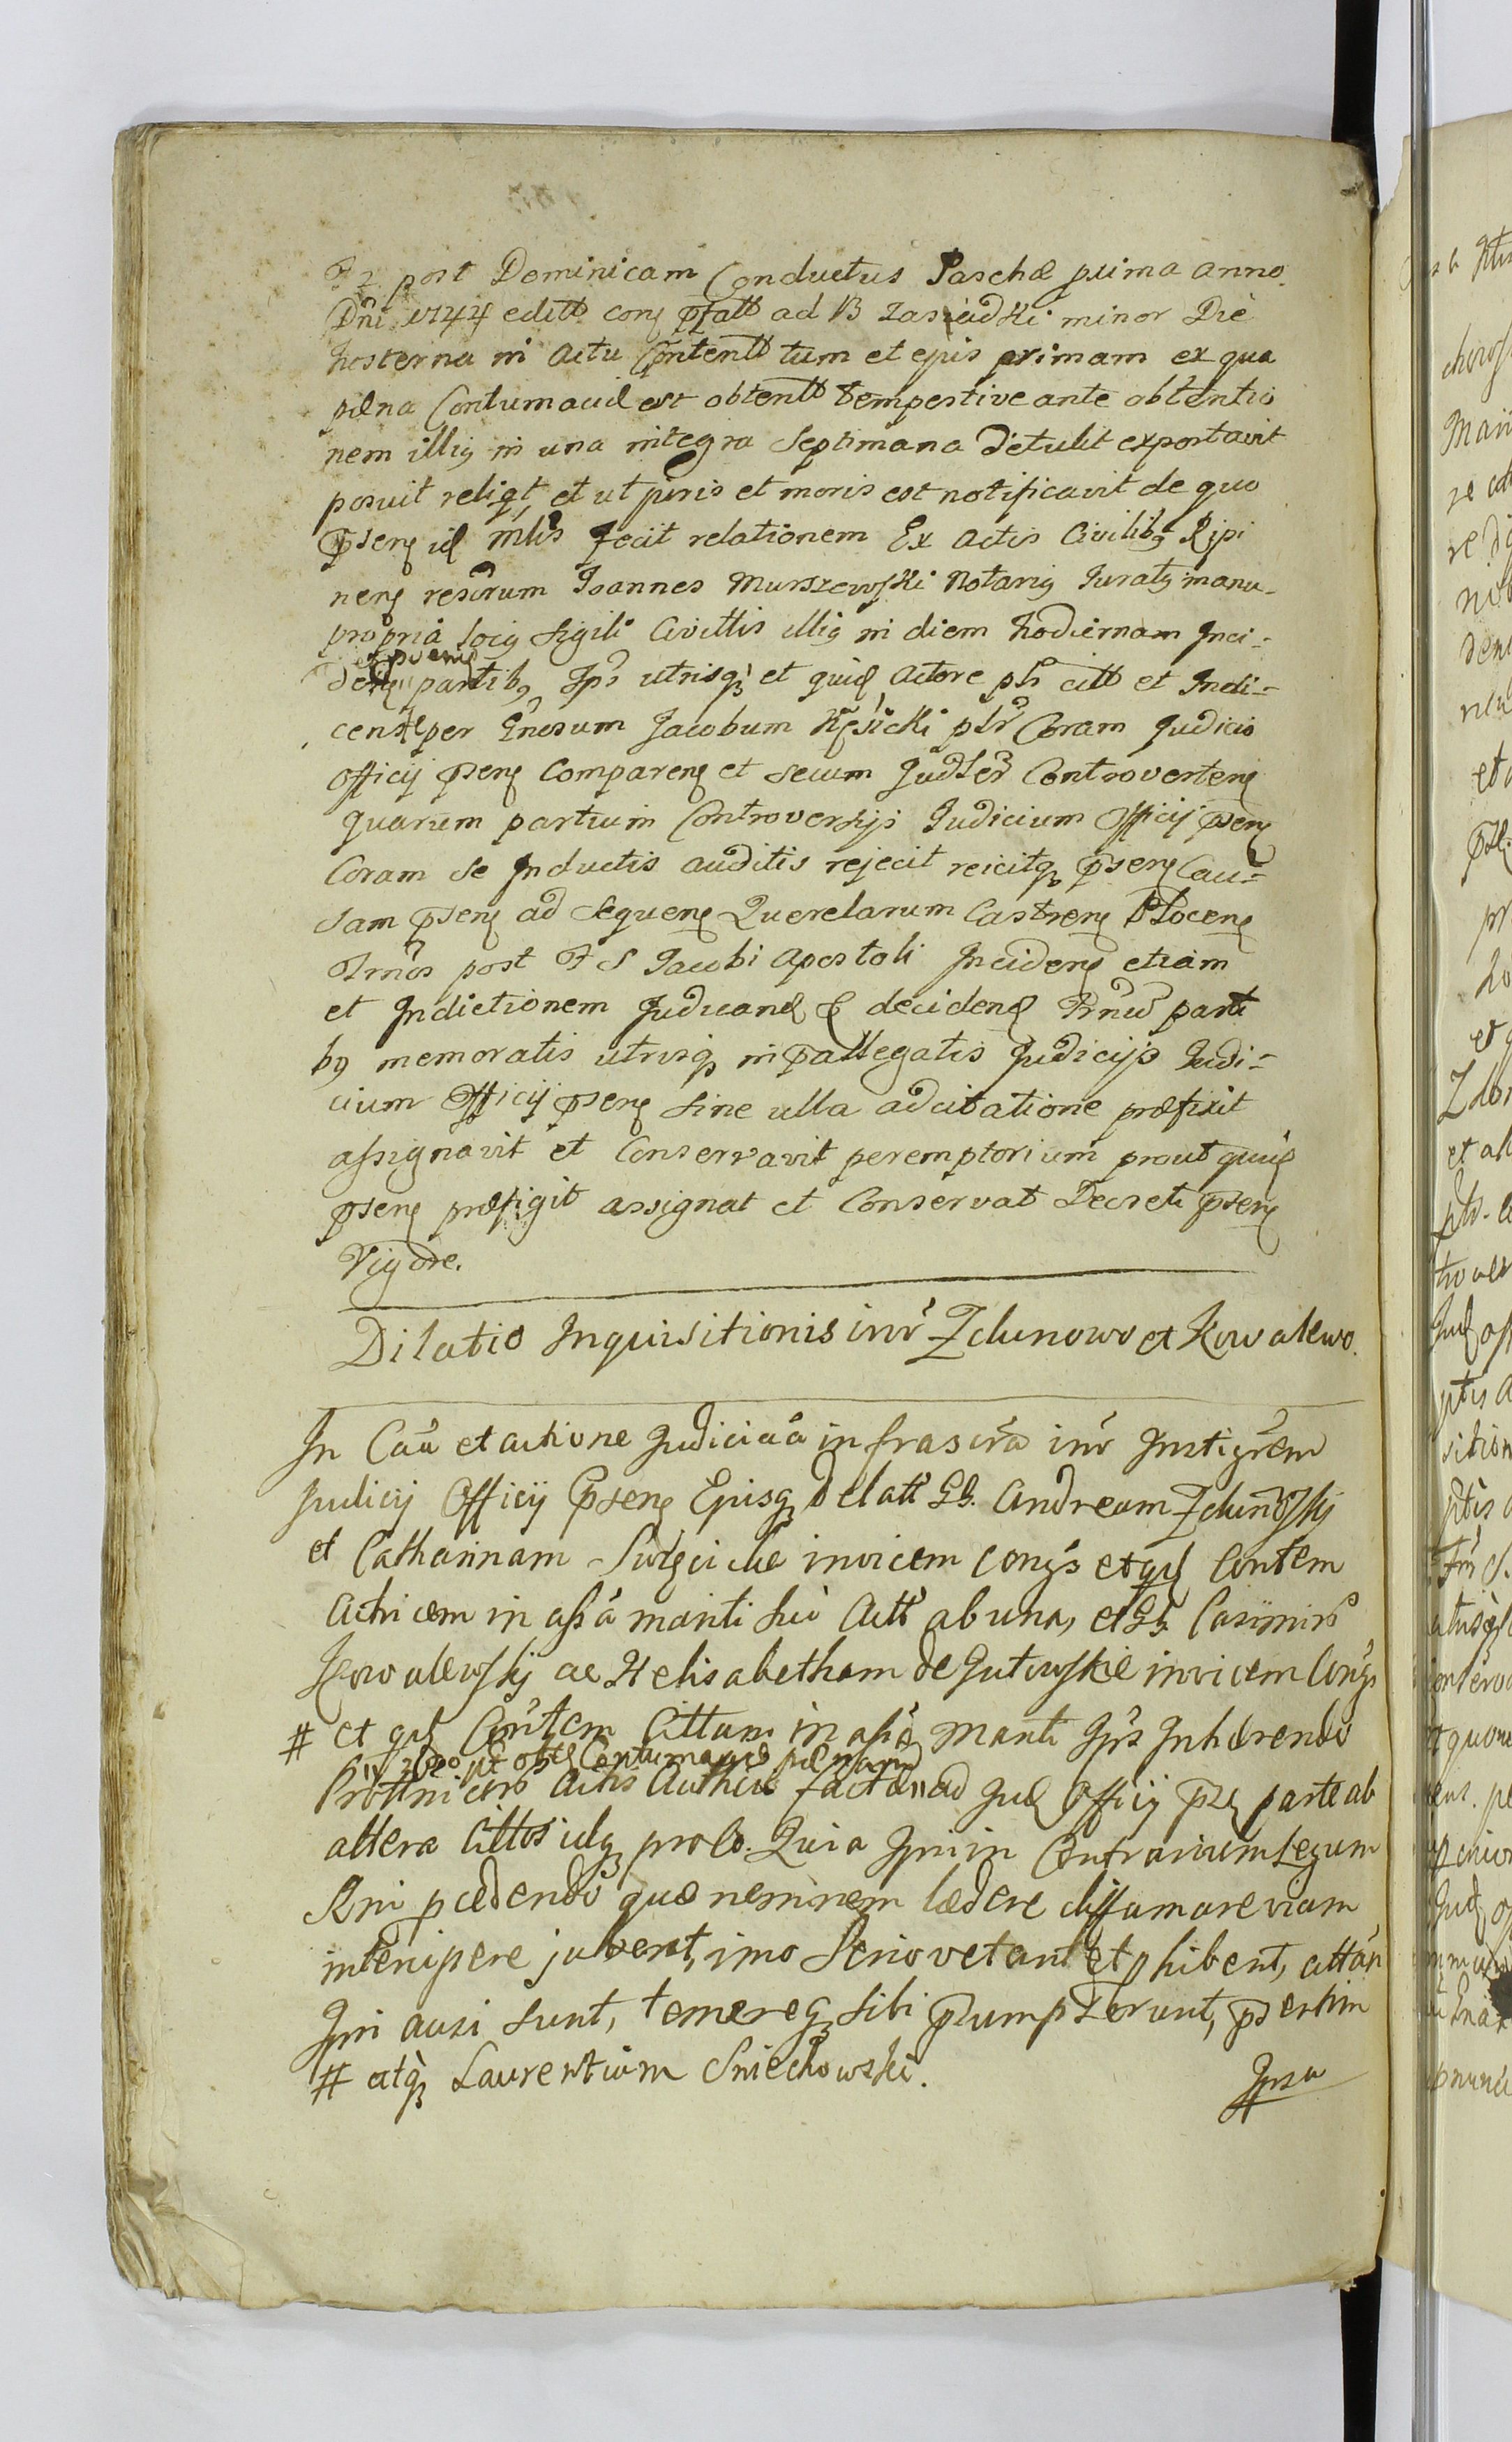 post Dominicam Conductus Paschæ prima anno
Dni 1744 editt conꝫ ad B Zasiadki minor Die
hesterna in Actu Contentt tum et ejus primam ex qua
pæna Contumaciæ est obtentt tempestive ante obtentio
nem illig in una integra Septimana detulit exportavit
posuit reliqt, et ut juris et moris est notificavit de quo
pseng id mlis fecit relationem Ex Actis Civilibꝫ Ripi
neng rescrum Joannes Murszewski Notarig Juratg manu
propria Locig Sigili Civillis illig in diem hodiernam Inci-
deng partibꝫ Ips utrisqꝫ et quid Actore citt et Indi-
cent per Gnosum Jacobum Kęsicki Coram Judicio
Officij pseng Compareng et secum Controverteng
quarum partium Controversijs Judicium Officij pseng
Coram se Inductis auditis rejecit reicitqꝫ pseng Cau-
sam pseng ad Sequeng Querelarum Castreng Ploceng
Trmos post F S Jacobi Apostoli Incideng etiam
et Indictionem Judicand & decidend partt
bꝫ memoratis utrisqꝫ in pallegatis Judicijs Judi-
cium Officij pseng sine ulla adcitatione præfixit
assignavit et Conservavit peremptorium prout quid
pseng præfigit assignat et Conservat Decreti pseng
Vigore.
Dilatio Inquisitionis inr Zdunowo et Kowalewo.
In Cau et actione Judiciaa infrascra inr Instigrem
Judicij Officij Pseng Ejusqꝫ Delatt GG. Andream Zdunowskj
et Catharinam invicem congs et qd Contem
Actricem in assa mariti sui Actt ab una, et GG. Casimirm
Kowalewskj ac Helisabetham de Gutowskie invicem Congs
# et qd Contem Cittam in assa Mariti Ips Inhærendo
Contumaciæ
Actis factæ ad Jud Officij parte ab
altera Cittos idqꝫ pro eo. Quia Ipni in Contrarium Legum
Rni pcedendo quæ neminem lædere diffamare viam
intercipere jubent, imo Serio vetant et phibent, attan
Ipni ausi sunt, temereqꝫ sibi psumpserunt, psertim
# atqꝫ Laurentium Sniechowski.
Ipsa